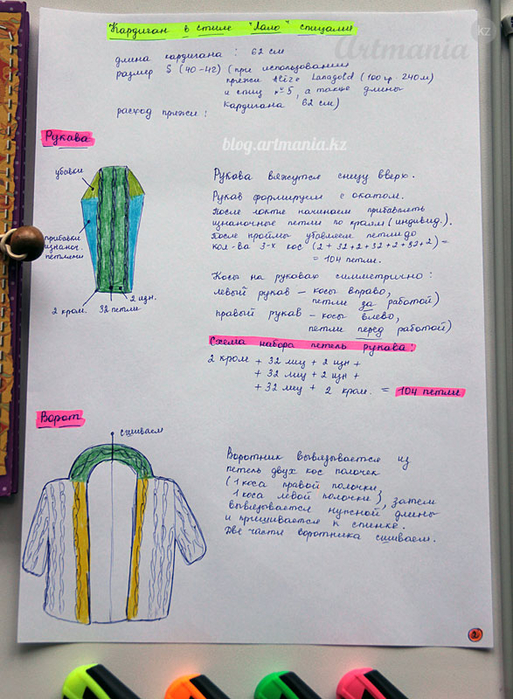 Artmania
kz
Кардиган в стиле "Лало" спицами
длина кардигана : 62 см
размер S (40-42) (при использовании
пряжи Alize Lanagold (100гр. 240м)
и спиц №5, а также длины
кардигана 62 см)
расход пряжи :
blog.artmania.kz
Рукава
убавки
прибавки
изнаноч.
петлями
2 кром.
32 петли
2 изн.
Рукава вяжутся снизу вверх.
Рукав формируем с окатом.
После локтя начинаем прибавлять
изнаночные петли по краям (индивид.).
После проймы убавляем петли до
кол-ва 3-х кос (2+32+2+32+2+32+2) =
= 104 петли.
Косы на рукавах симметрично :
левый рукав – косы вправо,
петли за работой)
правый рукав – косы влево,
петли перед работой)
Схема набора петель рукава:
2 кром + 32 лиц + 2 изн +
+ 32 лиц + 2 изн +
+ 32 лиц + 2 кром. = 104 петли
Ворот
сшиваем
Воротник вывязывается из
петель двух кос полочек
(1 коса правой полочки,
1 коса левой полочки), затем
ввязовается нужной длины
и пришивается к спинке.
Две части воротника сшиваем.
2